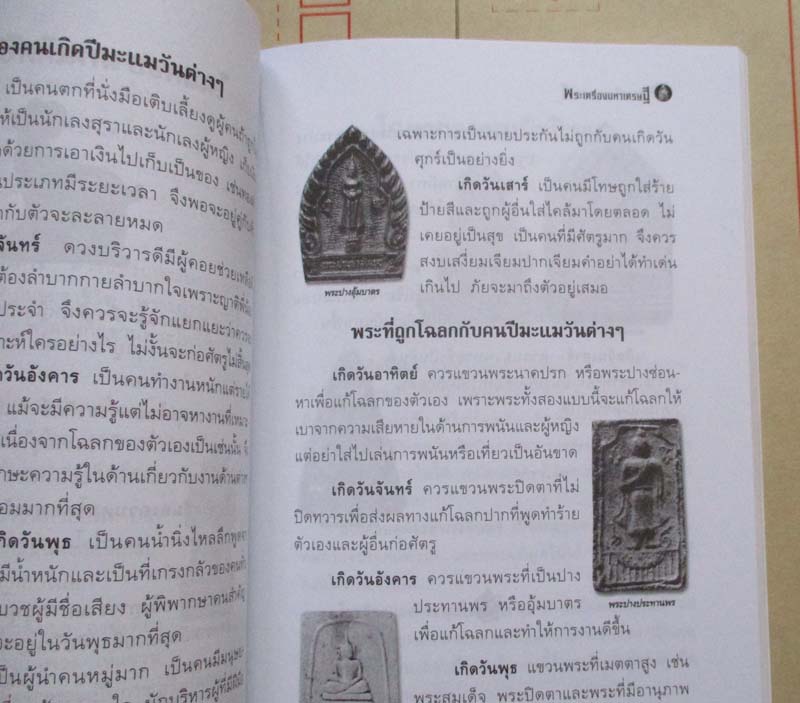 องคนเกิดปีมะแมวันต่างๆ
เป็นคนตกที่นั่งมือเติบเลี้ยงดูผู้คน
ห้เป็นนักเลงสุราและนักเลงผู้หญิง
ด้วยการเอาเงินไปเก็บเป็นของ เช่น
นประเภทมีระยะเวลา จึงพอจะอยู่
ากับตัวจะละลายหมด
จันทร์ ดวงบริวารดีมีผู้คอยช่วยเหลือ
ต้องลำบากกายลำบากใจเพราะญาติพี่น้อง
ประจำ จึงควรจะรู้จักแยกแยะว่าควร
าะห์ใครอย่างไร ไม่งั้นจะก่อศัตรูไม่สิ้นสุด
ดวันอังคาร เป็นคนทำงานหนักแต่
แม้จะมีความรู้แต่ไม่อาจหางานที่เหมาะ
เนื่องจากโฉลกของตัวเองเป็นเช่นนั้น
กษะความรู้ในด้านเกี่ยวกับงานด้าน
อมมากที่สุด
กิดวันพุธ เป็นคนน้ำนิ่งไหลลึกพูด
มีน้ำหนักและเป็นที่เกรงกลัวของคน
บวชผู้มีชื่อเสียง ผู้พิพากษาคนสำคัญ
จะอยู่ในวันพุธมากที่สุด
เป็นผู้นำคนหมู่มาก เป็นคนมีมนุษย
นักบริหารผู้ที่มี
พระเครื่องมหาเศรษฐี
เฉพาะการเป็นนายประกันไม่ถูกกับคนเกิดวัน
ศุกร์เป็นอย่างยิ่ง
เกิดวันเสาร์ เป็นคนมีโทษถูกใส่ร้าย
ป้ายสีและถูกผู้อื่นใส่ไคล้มาโดยตลอด ไม่
เคยอยู่เป็นสุข เป็นคนที่มีศัตรูมาก จึงควร
สงบเสงี่ยมเจียมปากเจียมคำอย่าได้ทำเด่น
เกินไป ภัยจะมาถึงตัวอยู่เสมอ
พระปางอุ้มบาตร
พระที่ถูกโฉลกกับคนปีมะแมวันต่างๆ
เกิดวันอาทิตย์ ควรแขวนพระนาคปรก หรือพระปางซ่อน-
หาเพื่อแก้โฉลกของตัวเอง เพราะพระทั้งสองแบบนี้จะแก้โฉลกให้
เบาจากความเสียหายในด้านการพนันและผู้หญิง
แต่อย่าใส่ไปเล่นการพนันหรือเที่ยวเป็นอันขาด
เกิดวันจันทร์ ควรแขวนพระปิดตาที่ไม่
ปิดทวารเพื่อส่งผลทางแก้โฉลกปากที่พูดทำร้าย
ตัวเองและผู้อื่นก่อศัตรู
เกิดวันอังคาร ควรแขวนพระที่เป็นปาง
ประทานพร หรืออุ้มบาตร
เพื่อแก้โฉลกและทำให้การงานดีขึ้น
พระปางประทานพร
เกิดวันพุธ แขวนพระที่เมตตาสูง เช่น
พระสมเด็จ พระปิดตาและพระที่มีอานุภาพ